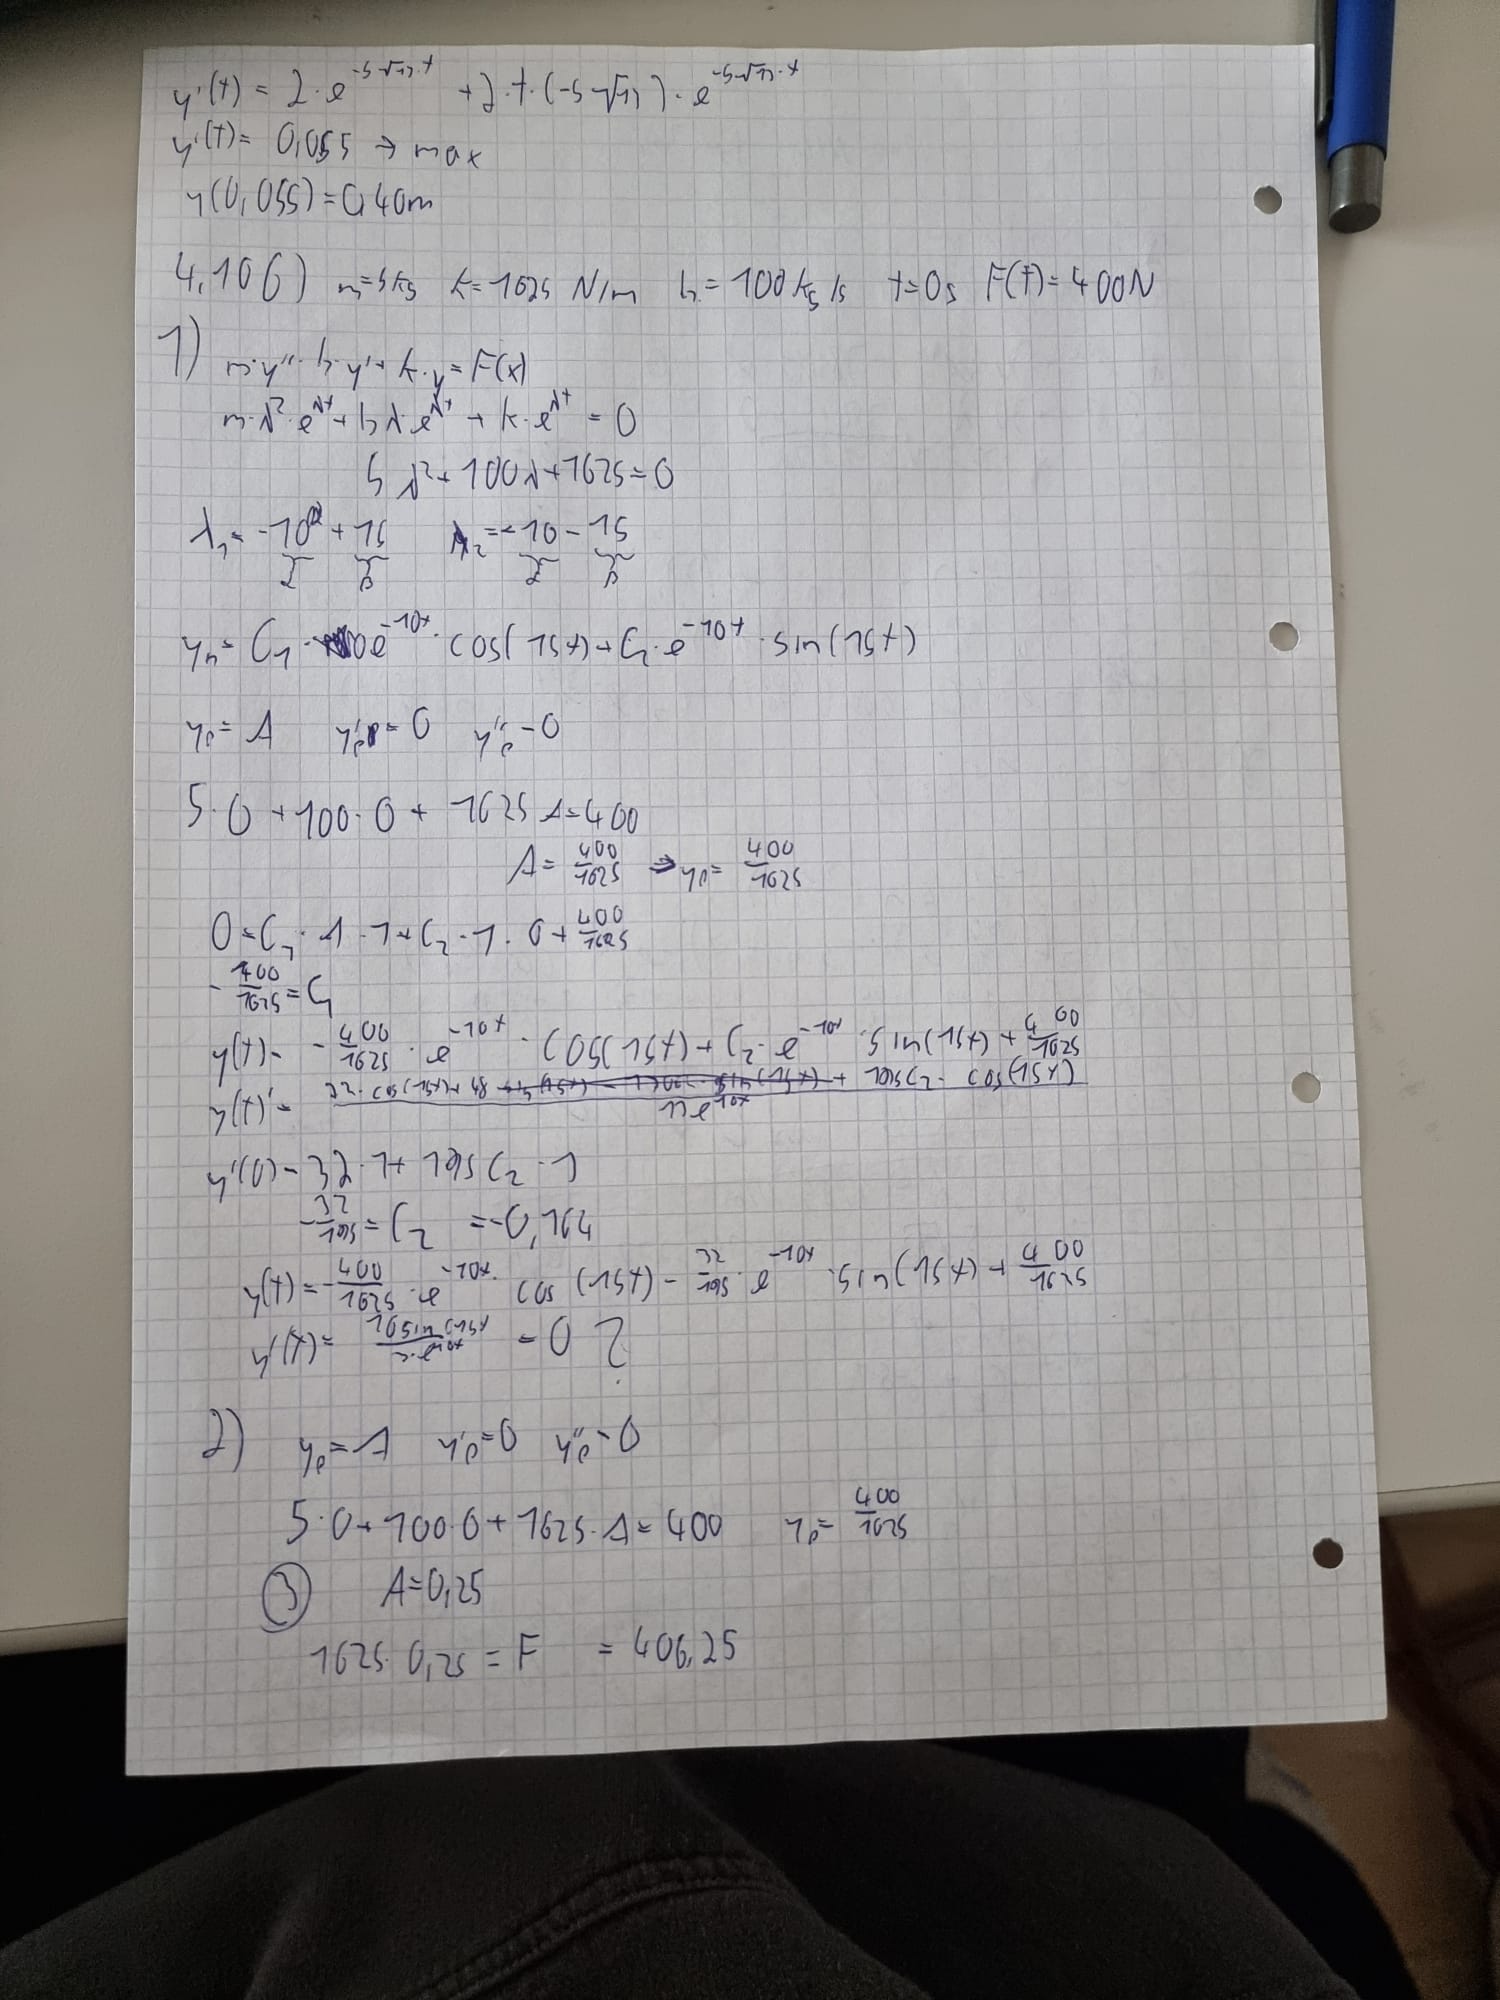 y'(t) = 2·e^-5√13·t + 2·t·(-5√13)·e^-5√13·t
y'(t) = 0,055 → max
y(0,055) = 0,40m
4.106) m=5kg k=1625 N/m b=100kg/s t=0s F(t)=400N
1) m·y''·b·y'+k·y=F(x)
m·λ²·e^λt+bλ·e^λt+k·e^λt=0
5λ²+100λ+1625=0
λ₁=-10+15 λ₂=-10-15
yh=C₁·e^-10t·cos(15t)+C₂·e^-10t·sin(15t)
yp=A y'p=0 y''p=0
5·0+100·0+1625A=400
A=400/1625 ⇒yp=400/1625
0=C₁·1·1+C₂·1·0+400/1625
-400/1625=C₁
y(t)=-400/1625·e^-10t·cos(15t)+C₂·e^-10t·sin(15t)+400/1625
y(t)'=
y'(0)=32·1+195C₂·1
-32/195=C₂ =-0,164
y(t)=-400/1625·e^-10t·cos(15t)-32/195·e^-10t·sin(15t)+400/1625
y'(t)= =0 ?
2) yp=A y'p=0 y''p=0
5·0+100·0+1625·A=400 yp=400/1625
3 A=0,25
1625·0,25=F =406,25